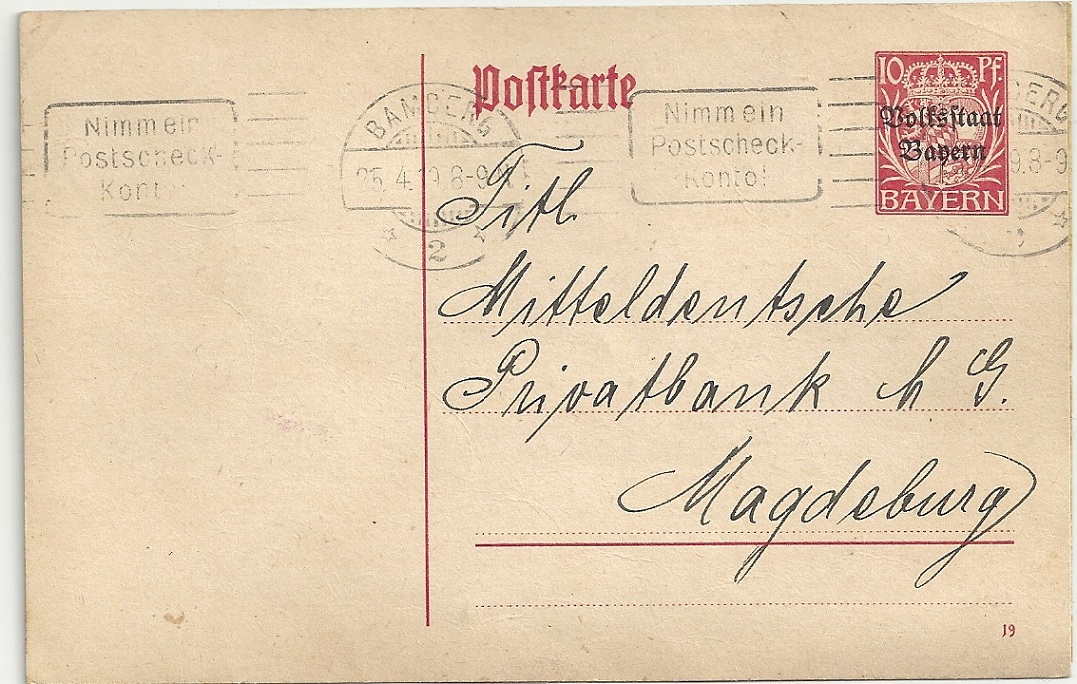 Postkarte
10 Pf.
Volksstaat
Bayern
BAYERN
Nimm ein
Postscheck-
Konto!
BAMBERG
25.4.19.8-9
2
Nimm ein
Postscheck-
Konto!
Titl
Mitteldeutsche
Privatbank A G.
Magdeburg
19